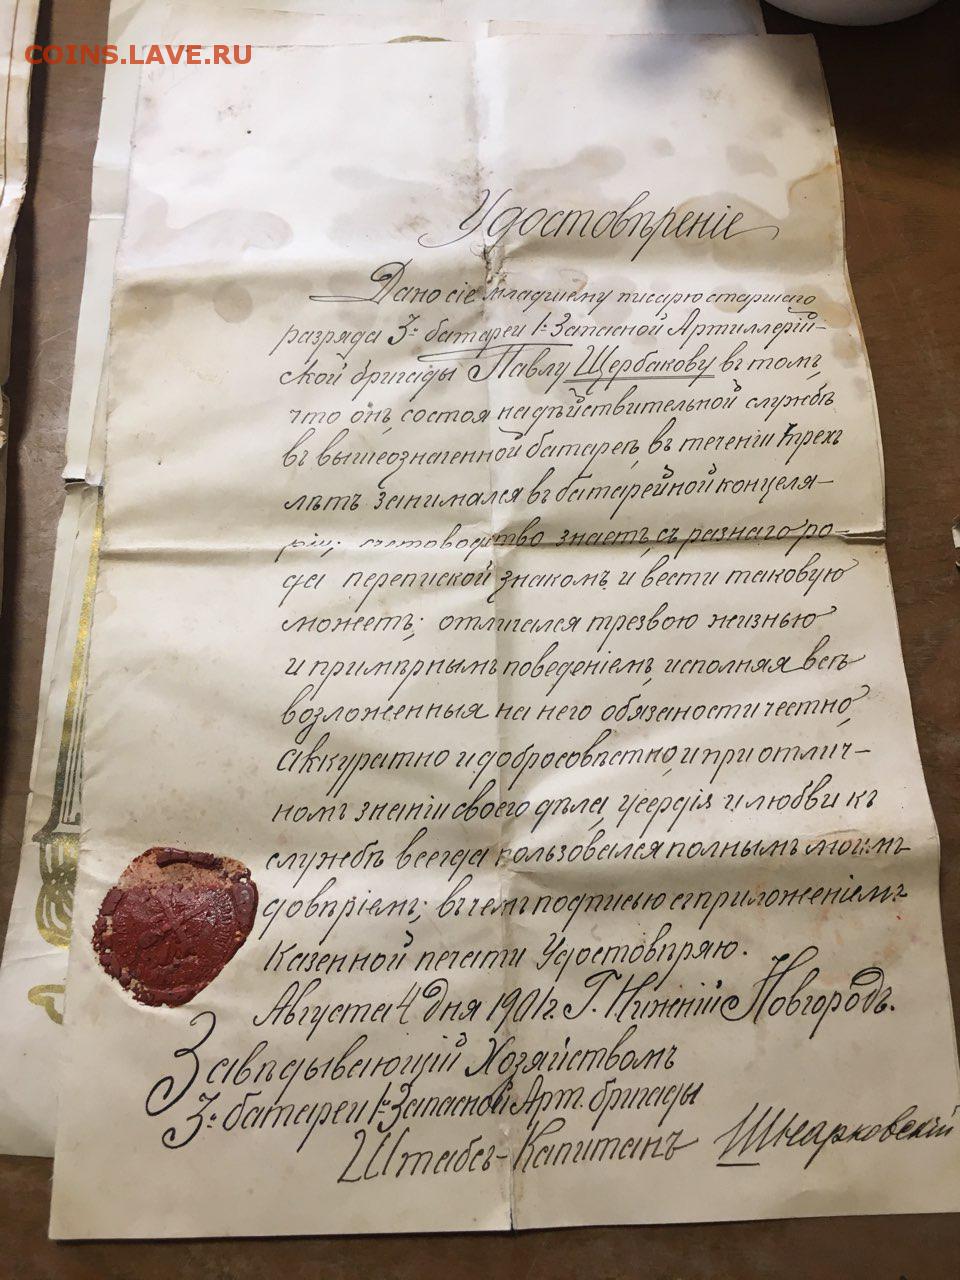 COINS.LAVE.RU
Удостовѣреніе
Дано сіе младшему писарю старшаго
разряда 3й батареи 1й Запасной Артиллерій-
ской бригады Павлу Щербакову въ томъ,
что онъ, состоя на дѣйствительной службѣ
въ вышеозначенной батареѣ, въ теченіи трехъ
лѣтъ занимался въ батарейной концеля-
ріи; счетоводство знаетъ, съ разнаго ро-
да перепиской знакомъ и вести таковую
можетъ; отличался трезвою жизнью
и примѣрнымъ поведеніемъ, исполняя всѣ
возложенныя на него обязаности честно,
аккуратно и добросовѣстно, и при отлич-
номъ знаніи своего дѣла, усердія и любви къ
службѣ всегда пользовался полнымъ моимъ
довѣріемъ; въ чемъ подписью съ приложеніемъ
Казенной печати Удостовѣряю.
Августа 4 дня 1901 г. Г. Нижній Новгородъ.
Завѣдывающій Хозяйствомъ
3й батареи 1й Запасной Арт. бригады
Штабсъ-Капитанъ